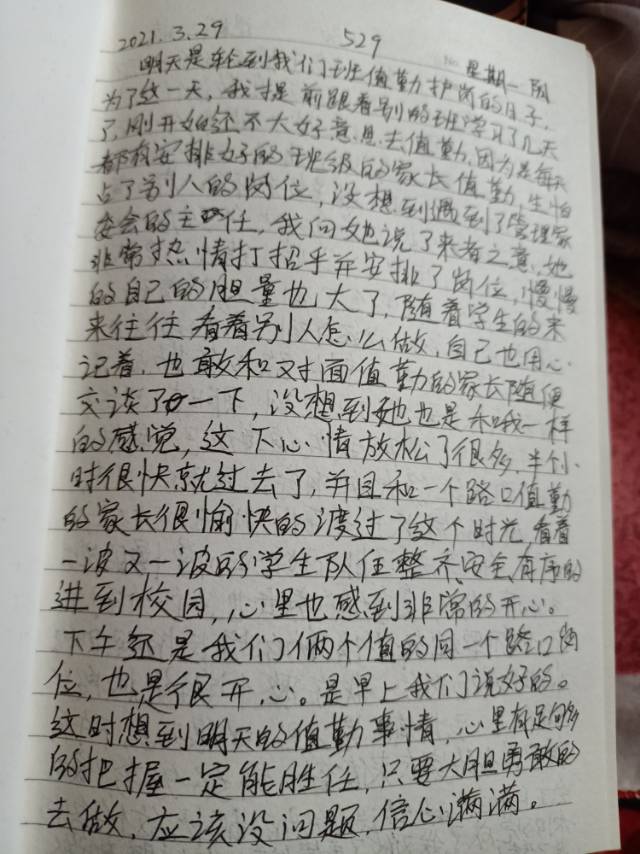 2021.3.29 529 No 星期一 阴
明天是轮到我们班值勤护岗的日子,
为了这一天,我提前跟着别的班学习了几天
了,刚开始还不大好意思去值勤,因为是每天
都有安排好的班级的家长值勤,生怕
占了别人的岗位,没想到遇到了管理家
委会的主任,我向她说了来者之意,她
非常热情打招乎并安排了岗位,慢慢
的自己的胆量也大了,随着学生的来
来往往看着别人怎么做,自己也用心
记着,也敢和对面值勤的家长随便
交谈了一下,没想到她也是和我一样
的感觉,这下心情放松了很多,半个小
时很快就过去了,并且和一个路口值勤
的家长很愉快的渡过了这个时光,看着
一波又一波的学生队伍整齐、安全、有序的
进到校园,心里也感到非常的开心。
下午还是我们俩个值的同一个路口岗
位,也是很开心。是早上我们说好的。
这时想到明天的值勤事情,心里有足够多
的把握一定能胜任,只要大胆勇敢的
去做,应该没问题,信心满满。